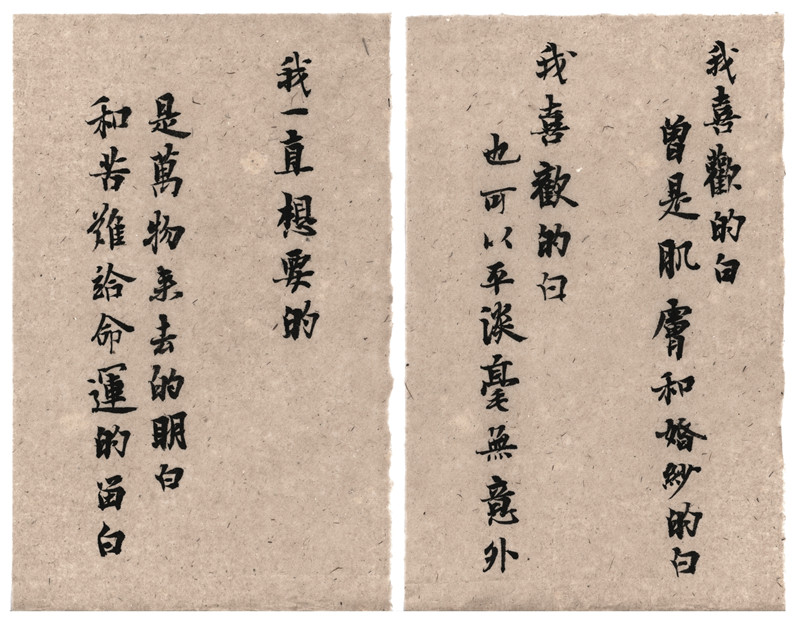 我喜歡的白
曾是肌膚和婚紗的白
我喜歡的白
也可以平淡毫無意外
我一直想要的
是萬物來去的明白
和苦難給命運的留白